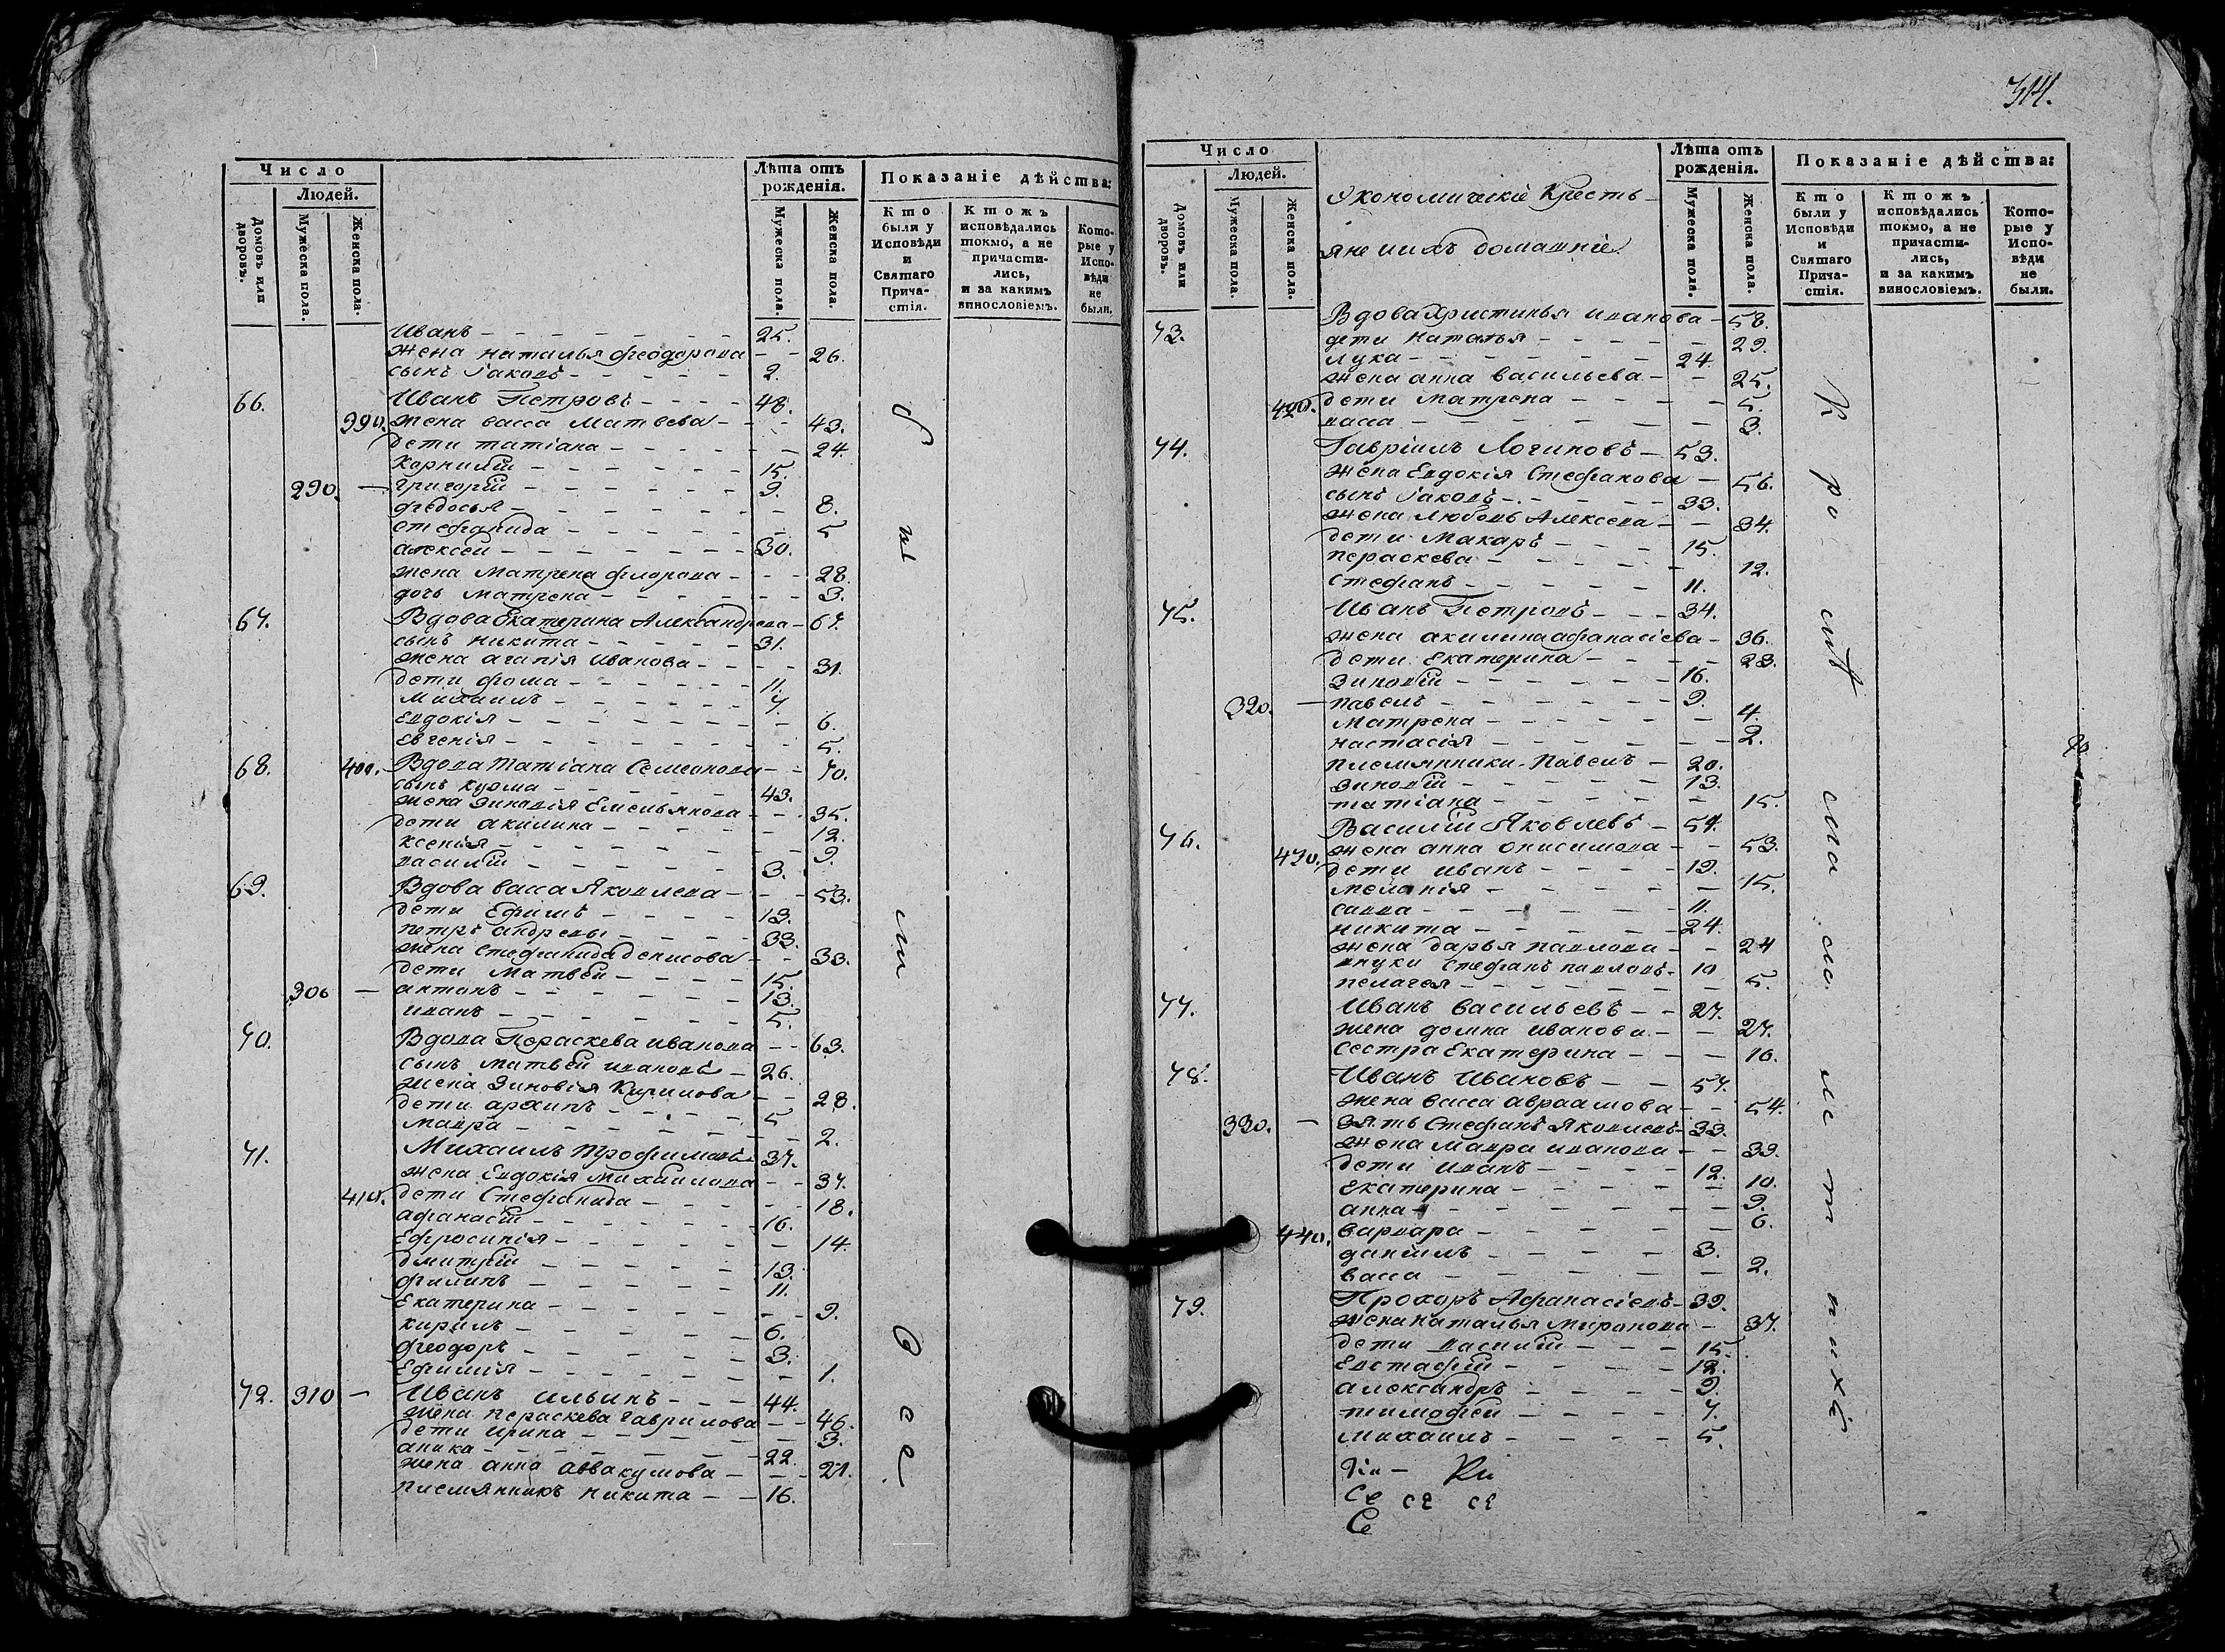 Число
Людей.
Домовъ или дворовъ.
Мужеска пола.
Женска пола.
Лѣта отъ рожденія.
Мужеска пола.
Женска пола.
Показаніе дѣйства:
Кто были у Исповѣди и Святаго Прича- стія.
Ктожъ исповѣдались токмо, а не причасти- лись, и за какимъ винословіемъ.
Кото- рые у Испо- вѣди не были.
Иванъ 25.
жена наталья феодорова 26.
сынъ Iаковъ 2.
66. Иванъ Петровъ 48.
390. жена васса Матвеева 43.
дети татiана 24.
Корнилiй 15.
290. григорiй 9.
федосья 8.
стефанида 5
алексей 30.
жена Матрена флорова 28.
дочь матрена 3.
67. Вдова Екатерина Александрова 67.
сынъ никита 31.
жена агапiя иванова 31.
дети фома 11.
Михаилъ 7.
Евдокiя 6.
Евгенiя 5.
68. 400. Вдова Татiана Семеонова 70.
сынъ кузма 43.
жена Зиновiя Емельянова 35.
дети акилина 12.
ксенiя 9.
василiй 3.
69. Вдова васса Яковлева 53.
дети Ефимъ 19.
петръ андреевы 33.
жена Стефанида денисова 33.
дети Матвей 15.
300 антонъ 13.
иванъ 5.
70. Вдова Пераскева иванова 63.
сынъ матвей ивановъ 26.
жена Зиновiя Кирилова 28.
дети архипъ 5
мавра 2.
71. Михаилъ Трофимовъ 37.
жена Евдокiя михайлова 37.
410. дети Стефанида 18.
афанасiй 16.
Ефросинiя 14.
дмитрiй 13.
филипъ 11.
Екатерина 9.
кирилъ 6.
феодоръ 3.
Ефимiя 1.
72. 310 Иванъ ильинъ 44.
жена пераскева гаврилова 46.
дети ирина 3.
аника 22.
жена анна аввакумова 21.
племянникъ никита 16.
Все
314.
Число
Людей.
Домовъ или дворовъ.
Мужеска пола.
Женска пола.
Экономическiе Кресть-
яне иихъ домашнiе
Лѣта отъ рожденія.
Мужеска пола.
Женска пола.
Показаніе дѣйства:
Кто были у Исповѣди и Святаго Прича- стія.
Ктожъ исповѣдались токмо, а не причасти- лись, и за какимъ винословіемъ.
Кото- рые у Испо- вѣди не были.
73. Вдова Христинья иванова 58.
дети наталья 29.
лука 24.
жена анна васильева 25.
420. дети матрена 5.
васса 3.
74. Гаврiилъ Логиновъ 53.
жена Евдокiя Стефанова 56.
сынъ Iаковъ 33.
жена любовь Алексеева 34.
дети Макаръ 15.
пераскева 12.
стефанъ 11.
75. Иванъ Петровъ 34.
жена акилина афанасiева 36.
дети Екатерина 23.
Зиновiй 16.
320. павелъ 9.
матрена 4.
настасiя 2.
племянники Павелъ 20.
Зиновiй 13.
татiана 15.
76. Василiй Яковлевъ 57.
430. жена анна онисимова 53.
дети иванъ 19.
меланiя 15.
савва 11.
никита 24.
жена дарья павлова 24
внуки Стефанъ павловъ 10
пелагея 5.
77. Иванъ васильевъ 27.
жена домна иванова 27.
сестра Екатерина 10.
78. Иванъ Ивановъ 57.
жена васса авраамова 54.
330. зять Стефанъ Яковлевъ 33.
жена мавра иванова 39.
дети иванъ 12.
Екатерина 10.
анна 9.
440. варвара 6.
данiилъ 3.
васса 2.
79. Прохоръ Афанасiевъ 39.
жена наталья миронова 37.
дети василiй 15.
Евстафiй 12.
александръ 9.
тимофей 7.
михаилъ 5.
Се се се
Се